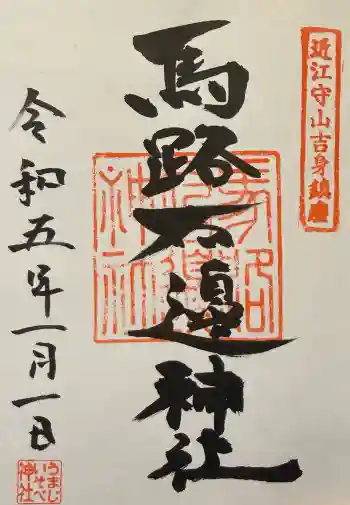 近江守山吉身鎮座
馬路石邊神社
令和五年一月一日
うまじ
いそべ
神社